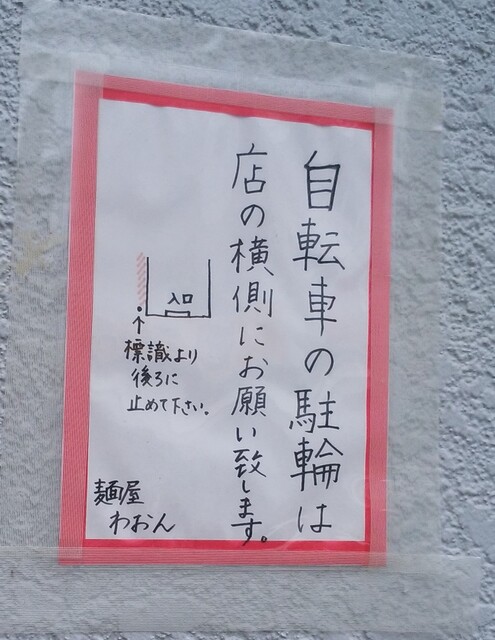 自転車の駐輪は
店の横側にお願い致します。
入口
標識より
後ろに
止めて下さい。
麺屋
わおん